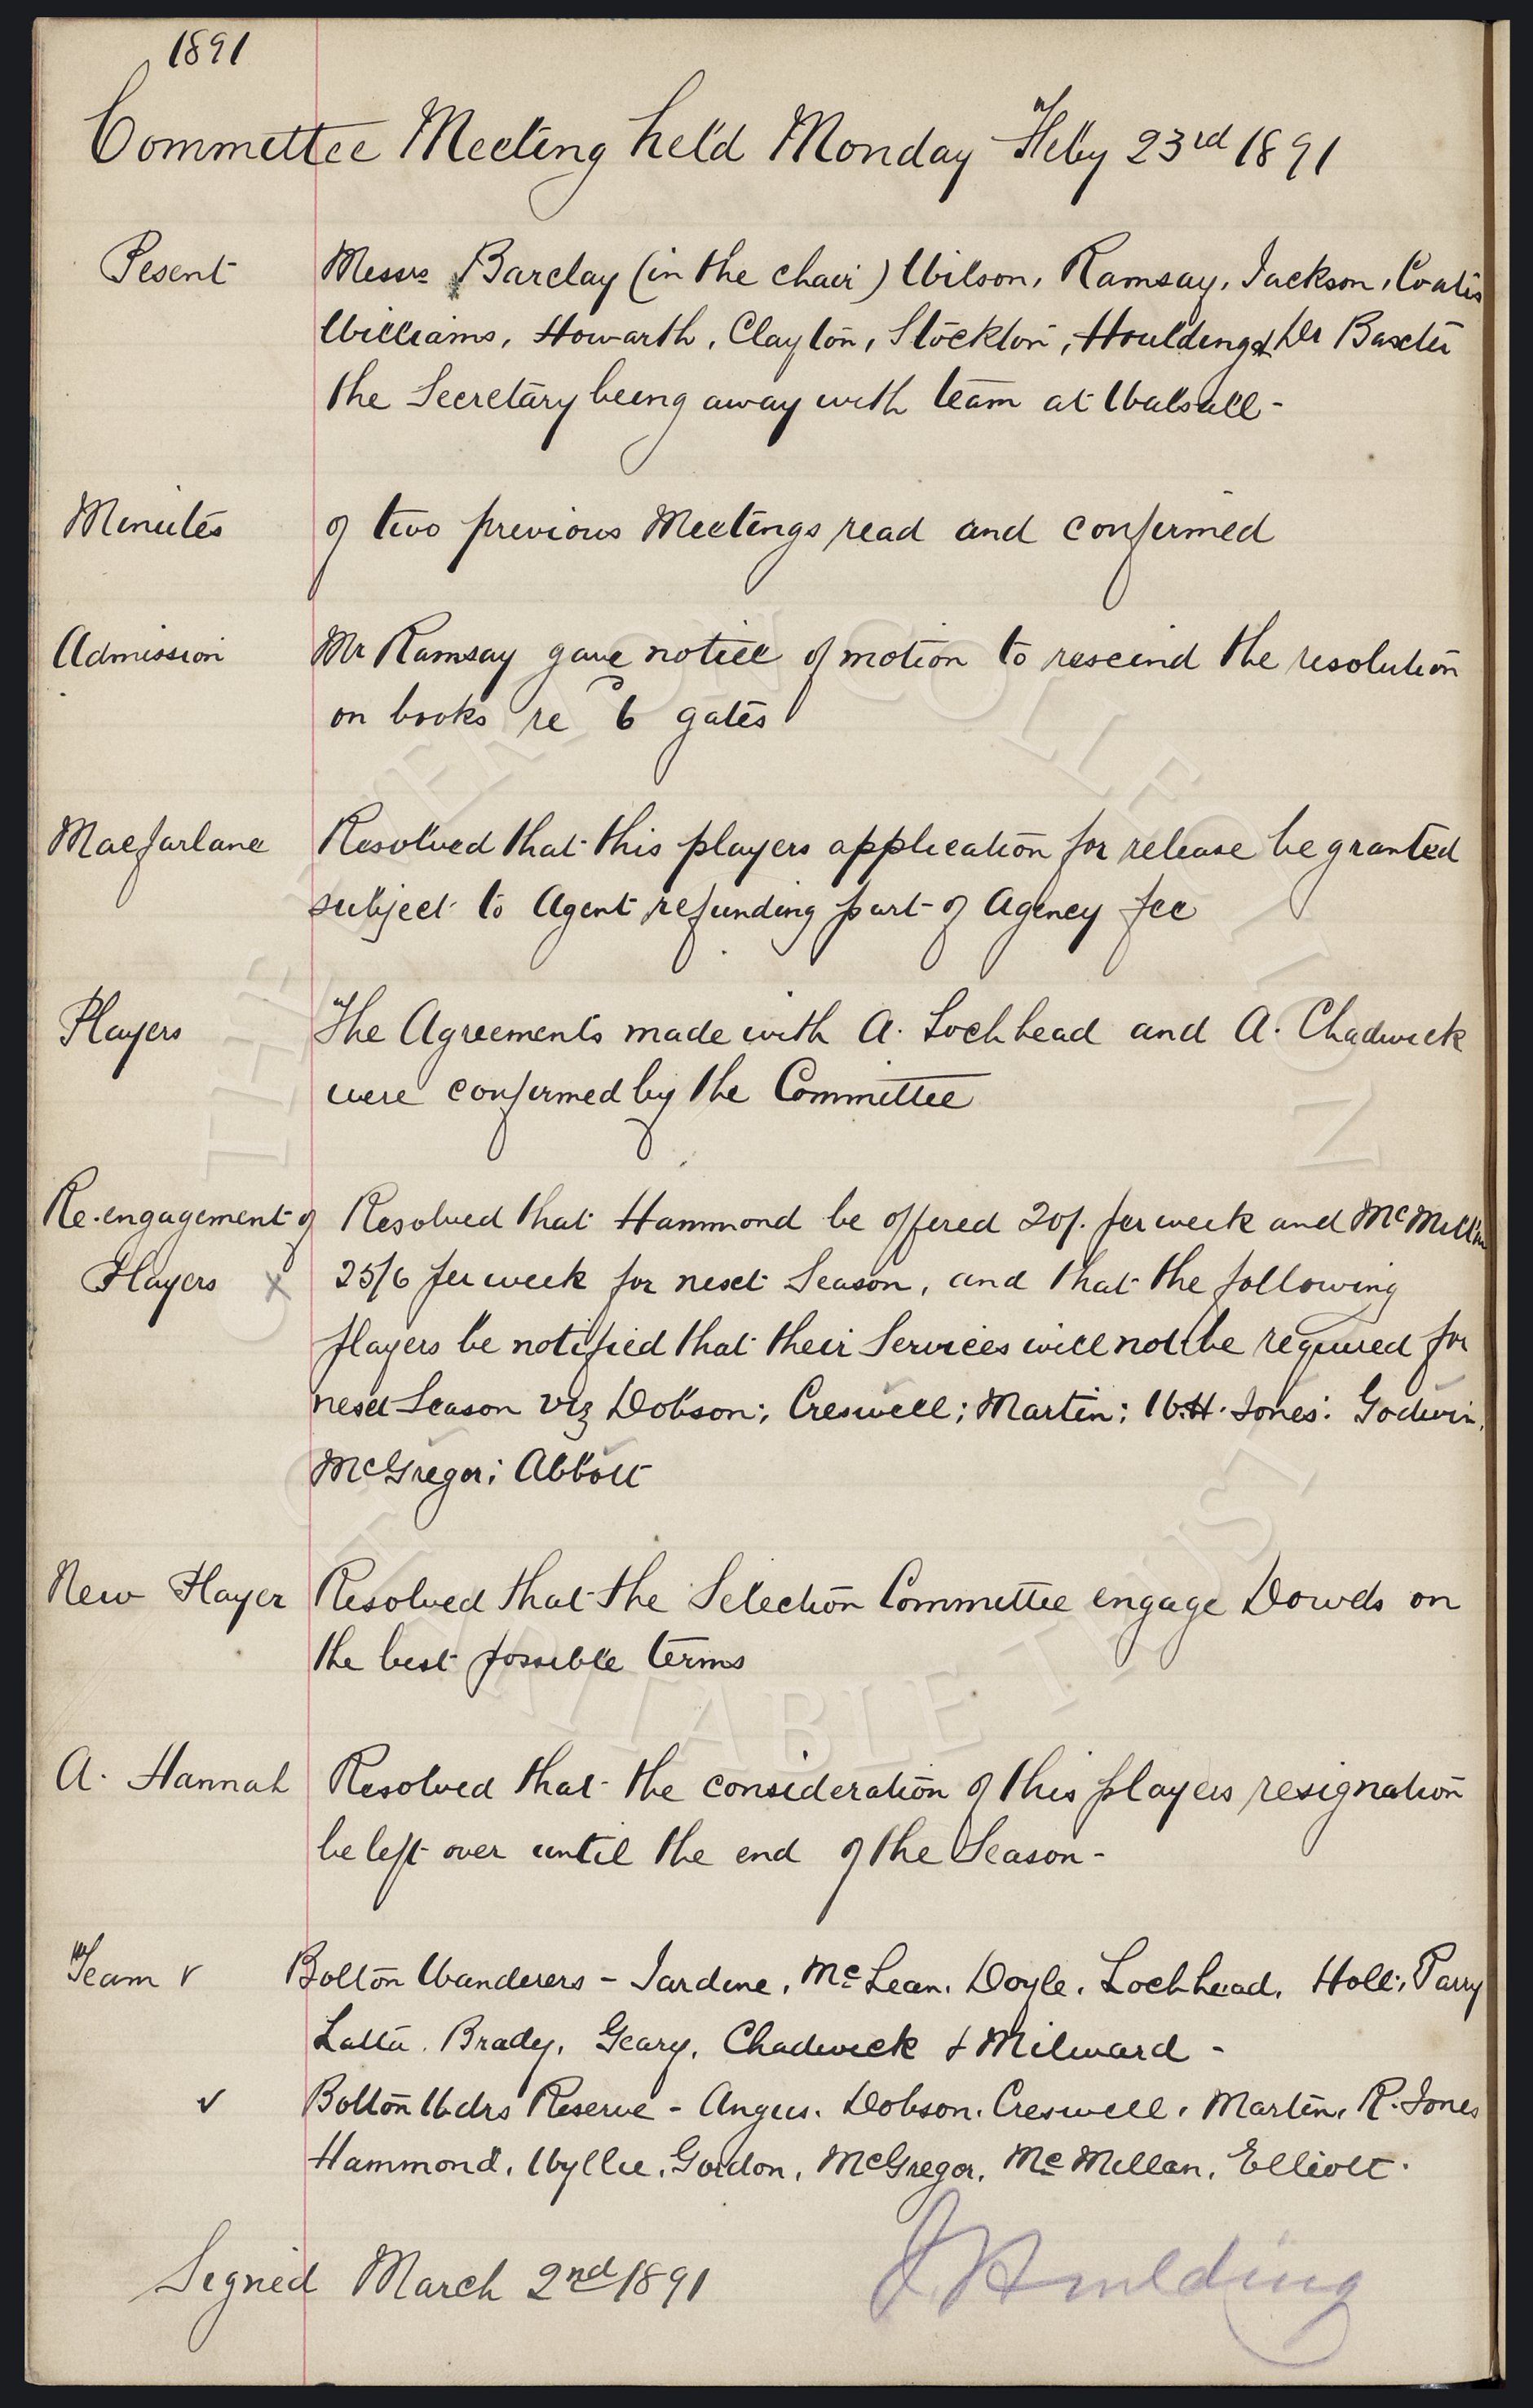 1891
Committee Meeting held Monday Feby 23rd 1891
Pesent Messrs Barclay (in the chair) Wilson, Ramsay, Jackson, Coates
Williams, Howarth, Clayton, Stockton, Houlding & Dr Baxter
the Secretary being away with team at Walsall -
Minutes of two previous Meetings read and confirmed
Admission Mr Ramsay gave notice of motion to rescind the resolution
on books re 6 gates
Macfarlane Resolved that this players application for release be granted
subject to Agent refunding part of Agency fee
Players The Agreements made with A. Lochhead and A. Chadwick
were confirmed by the Committee
Re-engagement of Resolved that Hammond be offered 20/. per week and McMillan
Players x 25/6 per week for next Season, and that the following
players be notified that their Services will not be required for
next Season viz Dobson; Creswell; Martin; W.H. Jones; Godwin,
McGregor; Abbott
New Player Resolved that the Selection Committee engage Dowds on
the best possible terms
A. Hannah Resolved that the consideration of this players resignation
be left over until the end of the Season -
Team v Bolton Wanderers - Jardine, McLean, Doyle, Lochhead, Holt, Parry
Latta, Brady, Geary, Chadwick & Milward -
v Bolton Wdrs Reserve - Angus. Dobson. Creswell, Martin, R. Jones
Hammond, Wyllie, Gordon, McGregor, McMillan, Elliott.
Signed March 2nd 1891 J Houlding
THE EVERTON COLLECTION
CHARITABLE TRUST